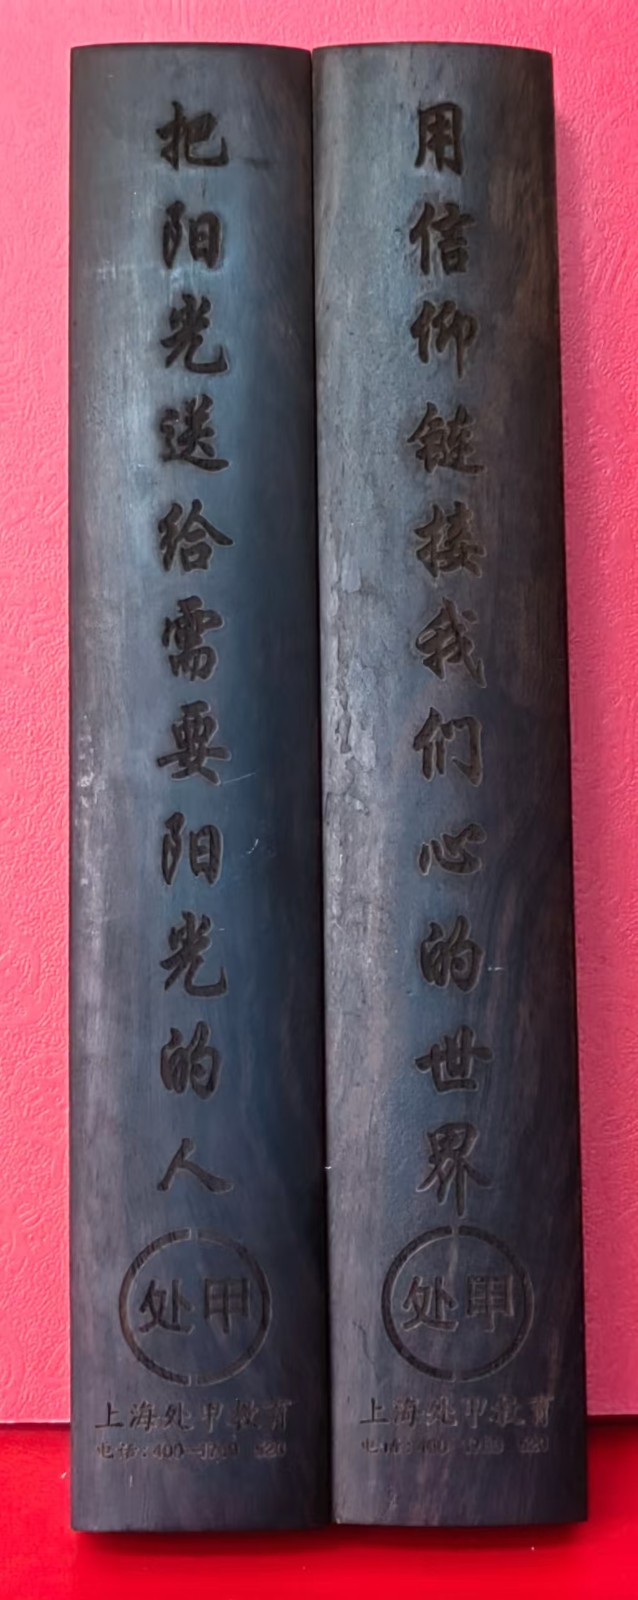 用信仰链接我们心的世界
处甲
上海处甲教育
电话:400
把阳光送给需要阳光的人
处甲
上海处甲教育
电话:400-1760 520